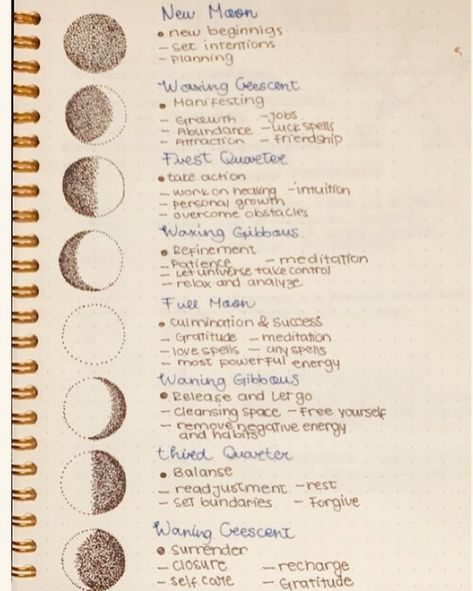 New Moon
• new beginnigs
- set intentions
- planning
Waxing Crescent
• Manifesting
- Growth - jobs
- Abundance - Luck spells
- Attraction - friendship
First Quarter
• take action
- work on healing - intuition
- personal growth
- overcome obstacles
Waxing Gibbous
• Refinement
- Patience - meditation
- Let universe take control
- relax and analyze
Full Moon
• culmination & success
- Gratitude - meditation
- love spells - any spells
- most powerful energy
Waning Gibbous
• Release and Let go
- cleansing space - Free yourself
- remove negative energy
and habits
third Quarter
• Balanse
- readjustment - rest
- set bundaries - Forgive
Waning Crescent
• Surrender
- closure - recharge
- self care - Gratitude